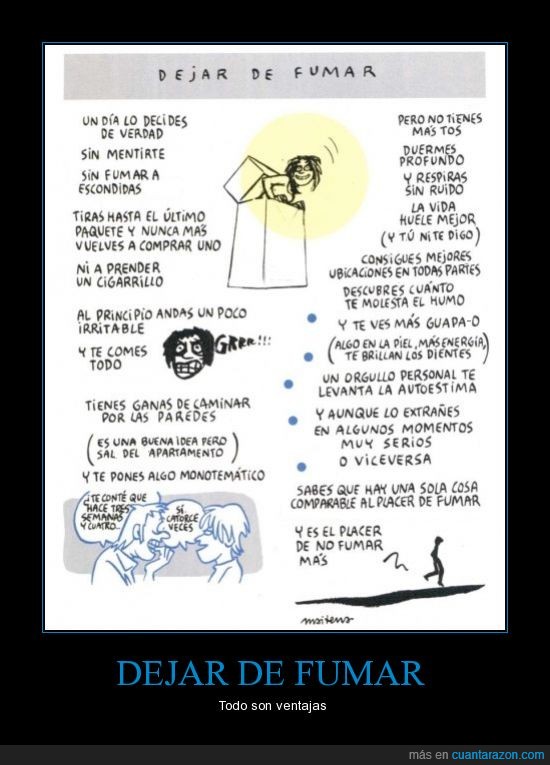 DEJAR DE FUMAR
UN DÍA LO DECIDES
DE VERDAD
SIN MENTIRTE
SIN FUMAR A
ESCONDIDAS
TIRAS HASTA EL ÚLTIMO
PAQUETE Y NUNCA MAS
VUELVES A COMPRAR UNO
NI A PRENDER
UN CIGARRILLO
AL PRINCIPIO ANDAS UN POCO
IRRITABLE
Y TE COMES
TODO
GRRR!!!
TIENES GANAS DE CAMINAR
POR LAS PAREDES
(ES UNA BUENA IDEA PERO
SAL DEL APARTAMENTO)
Y TE PONES ALGO MONOTEMÁTICO
¿TE CONTÉ QUE
HACE TRES
SEMANAS
Y CUATRO...
SÍ,
CATORCE
VECES
PERO NO TIENES
MÁS TOS
DUERMES
PROFUNDO
Y RESPIRAS
SIN RUIDO
LA VIDA
HUELE MEJOR
(Y TÚ NI TE DIGO)
CONSIGUES MEJORES
UBICACIONES EN TODAS PARTES
DESCUBRES CUÁNTO
TE MOLESTA EL HUMO
Y TE VES MÁS GUAPA-O
(ALGO EN LA PIEL, MÁS ENERGÍA,
TE BRILLAN LOS DIENTES)
UN ORGULLO PERSONAL TE
LEVANTA LA AUTOESTIMA
Y AUNQUE LO EXTRAÑES
EN ALGUNOS MOMENTOS
MUY SERIOS
O VICEVERSA
SABES QUE HAY UNA SOLA COSA
COMPARABLE AL PLACER DE FUMAR
Y ES EL PLACER
DE NO FUMAR
MÁS
maitena
DEJAR DE FUMAR
Todo son ventajas
más en cuantarazon.com